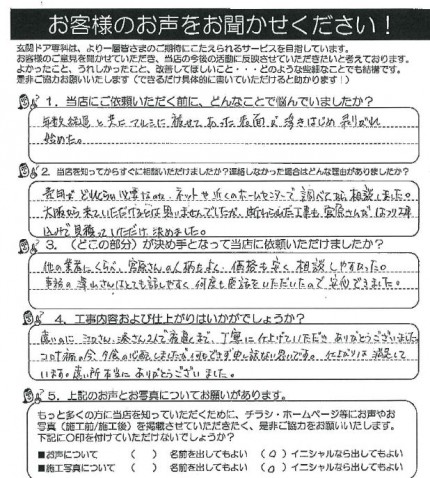 お客様のお声をお聞かせください!
玄関ドア専科は、より一層皆さまのご期待にこたえられるサービスを目指しています。
お客様のご意見を聞かせていただき、当店の今後の活動に反映させていただきたいと考えております。
よかったこと、うれしかったこと、改善してほしいこと・・・どのような些細なことでも結構です。
是非ご協力お願いいたします(できるだけ具体的に書いていただけると助かります!)
1. 当店にご依頼いただく前に、どんなことで悩んでいましたか?
年数経過と共にアルミに被せてあった表面が浮きはじめ剥がれ
始めた。
2. 当店を知ってからすぐに相談いただけましたか?連絡しなかった場合はどんな理由がありましたか?
費用がどれくらい必要なのか、ネットや近くのホームセンターで調べてから相談しました。
大阪から来ていただけるとは思いませんでしたが、断わられた工事も
見積っていただけ決めました。
3. (どこの部分)が決め手となって当店に依頼いただけましたか?
他の業者にくらべ、さんの人柄もよく、価格も安く相談しやすかった。
さんはとても話しやすく何度も電話をいただいたので安心できました。
4. 工事内容および仕上がりはいかがでしょうか?
さん、さん2人で夜遅くまで、丁寧に仕上げていただきありがとうございました
コロナ禍の今
仕上がりは満足して
います。遠い所本当にありがとうございました。
5. 上記のお声とお写真についてお願いがあります。
もっと多くの方に当店を知っていただくために、チラシ・ホームページ等にお声やお
写真(施工前/施工後)を掲載させていただきたく、是非ご協力をお願いいたします。
下記に〇印を付けていただけないでしょうか?
■お声について ( ) 名前を出してもよい (○) イニシャルなら出してもよい
■施工写真について ( ) 名前を出してもよい (○) イニシャルなら出してもよい